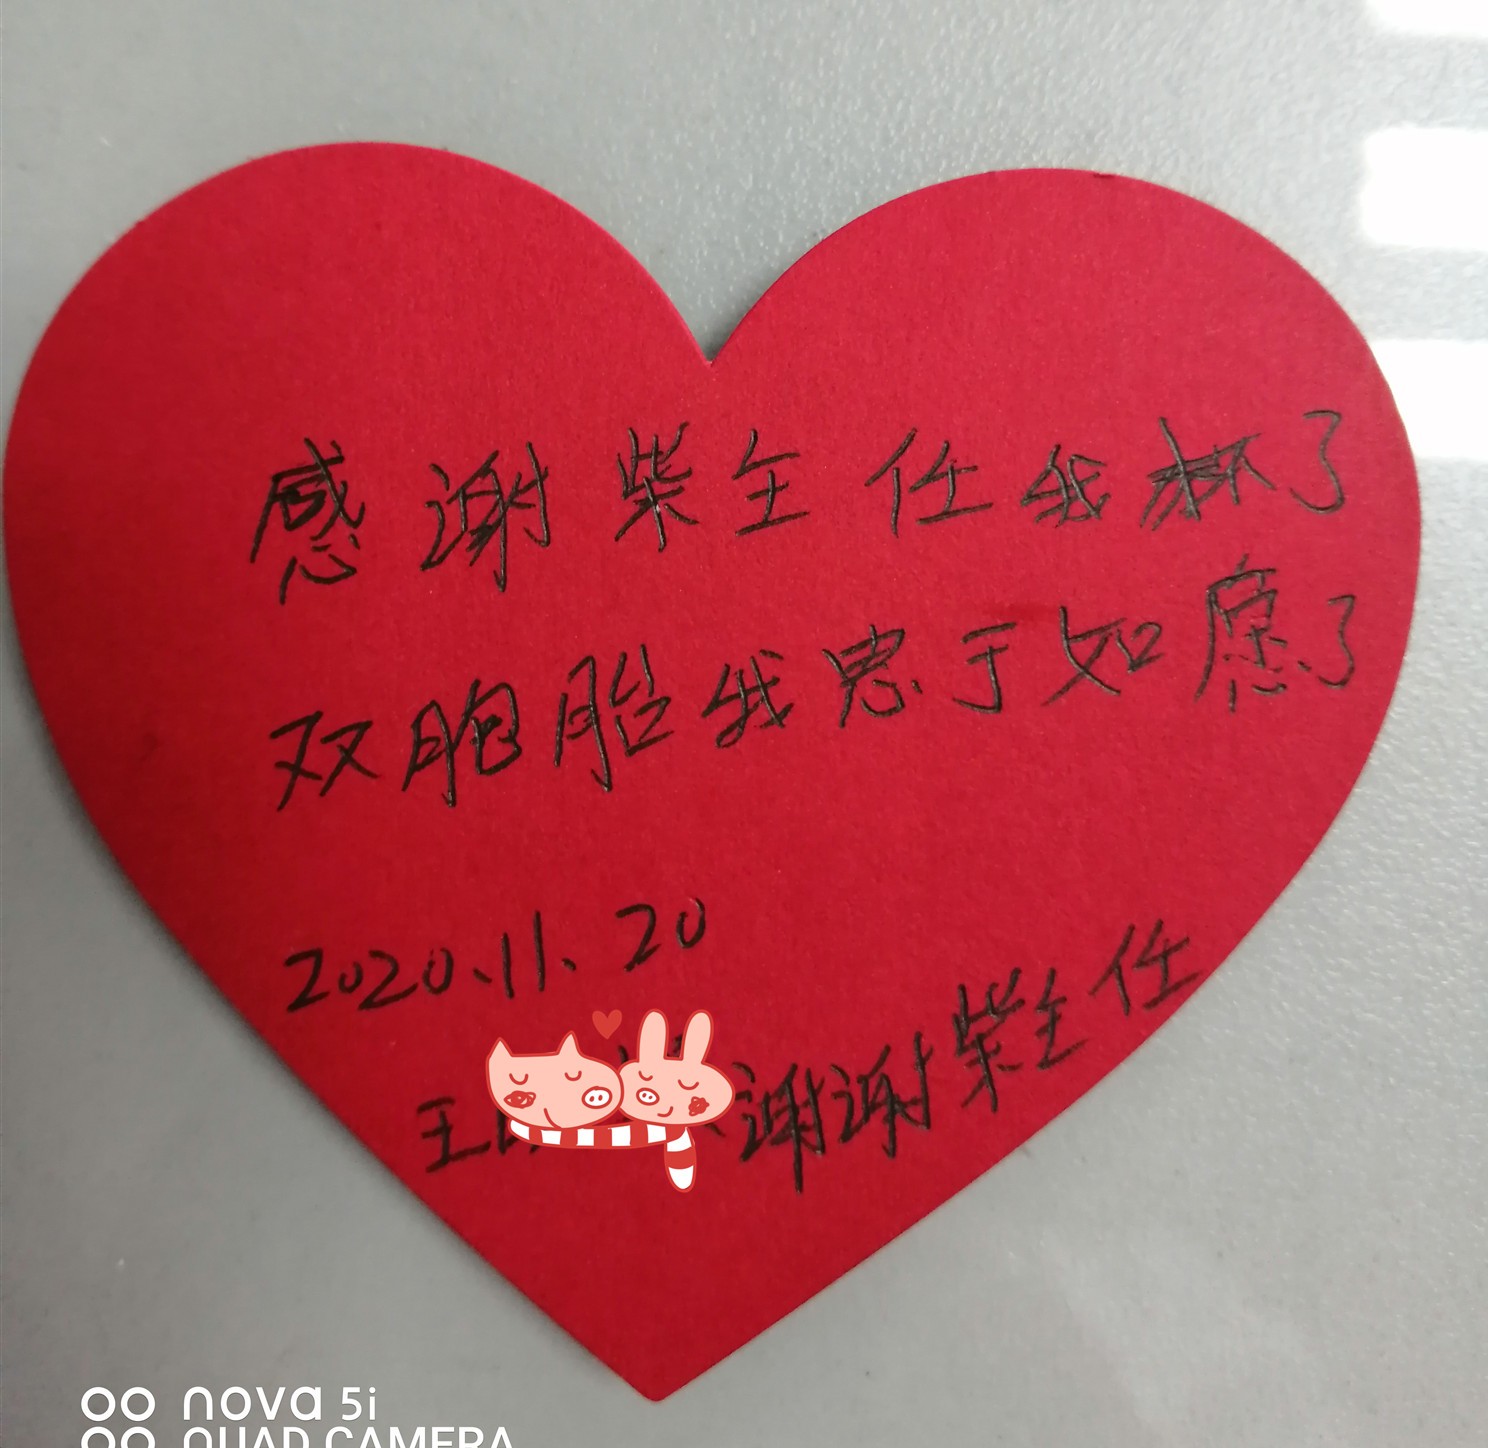 感谢柴主任我怀了
双胞胎我忠于如愿了
2020.11.20
王 谢谢柴主任
nova 5i
QUAD CAMERA